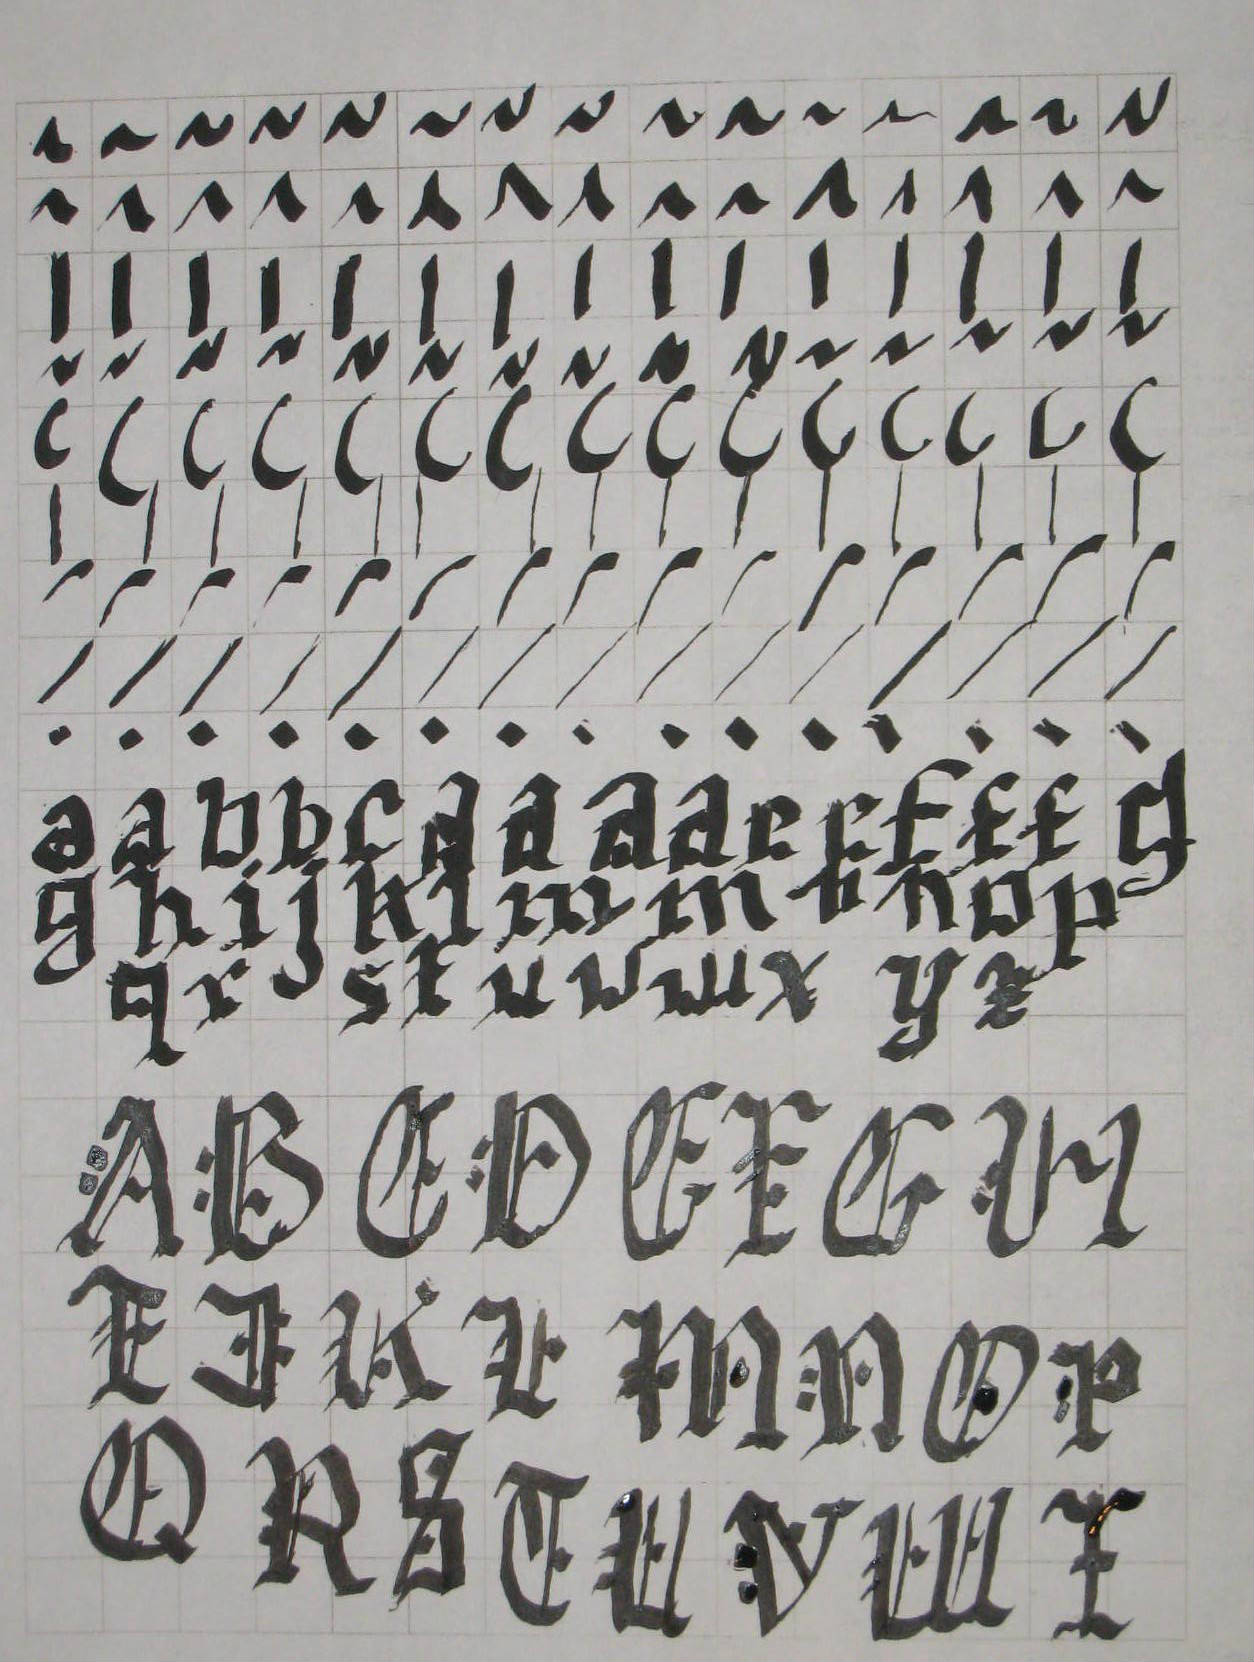 a a b b c d d d d e e f f f g
g h i j k l m m n n o p
q r s t u v w x y z
A B C D E F G H
I J K L M N O P
Q R S T U V W X